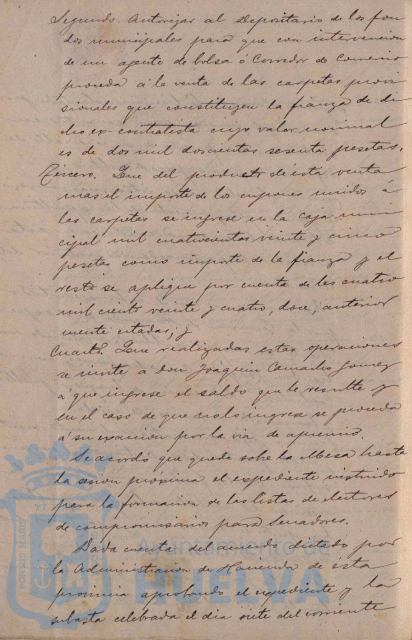 Segundo. Autorizar al Depositario de los fon
dos municipales para que con intervencion
de un agente de bolsa ó Corredor de Comercio
proceda á la venta de las carpetas provi
sionales que constituyen la fianza de di
cho ex-contratista cuyo valor nominal
es de dos mil doscientas sesenta pesetas.
Tercero. Que del producto de esta venta
mas el importe de los cupones unidos á
las carpetas se ingrese en la caja muni
cipal mil cuatrocientas veinte y cinco
pesetas como importe de la fianza y el
resto se aplique por cuenta de las cuatro
mil ciento veinte y cuatro, doce, anterior
mente citadas; y
Cuarto. Que realizadas estas operaciones
se invite á don Joaquin Camacho Gomez
á que ingrese el saldo que le resulte y
en el caso de que no lo ingrese se proceda
á su exaccion por la via de apremio.
Se acordó que quede sobre la Mesa hasta
la sesion proxima el expediente instruido
para la formacion de las listas de electores
de compromisarios para Senadores.
Dada cuenta del acuerdo dictado por
la Administracion de Hacienda de esta
provincia aprobando el expediente y la
subasta celebrada el dia siete del corriente
PORTUS MARIS
Ayuntamiento de
HUELVA